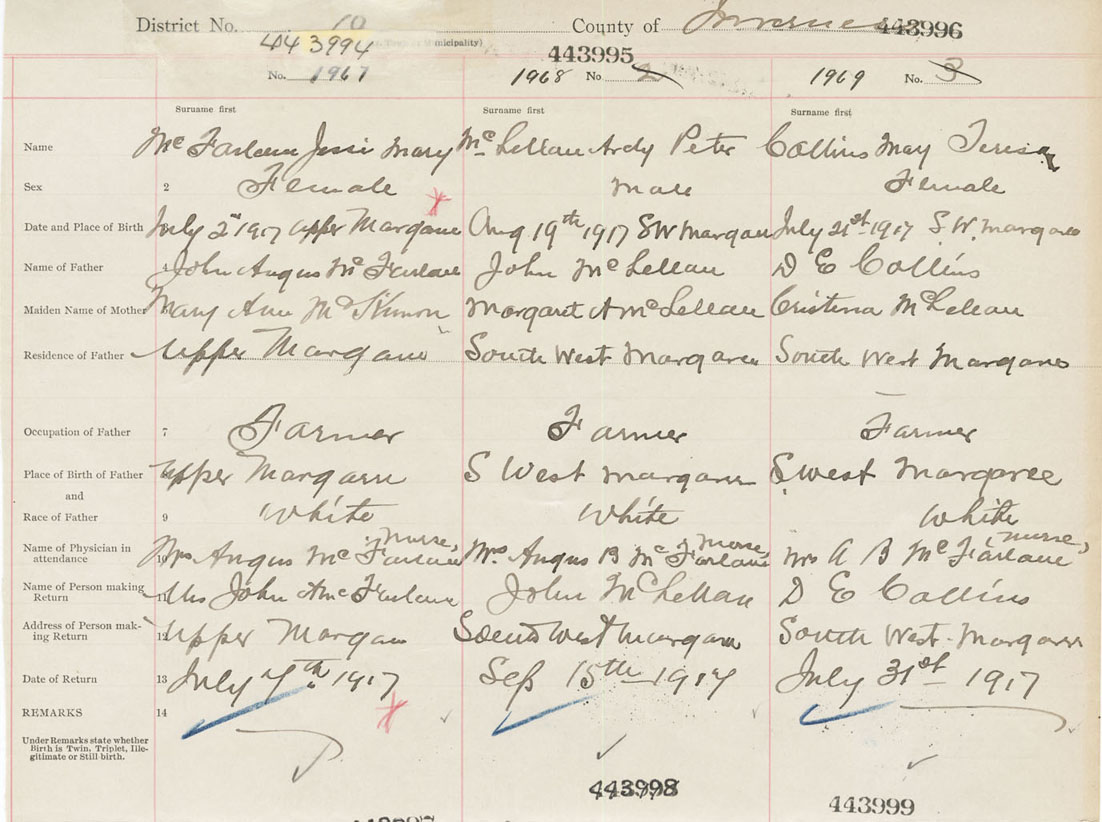 District No. 10 County of Inverness 443996
443994 Municipality) 443995
No. 1967 1968 No 2 1969 No. 3
Surname first Surname first Surname first
Name McFarlane Jessi Mary McLellan Andy Peter Collins May Teresa
Sex 2 Female Male Female
Date and Place of Birth July 2nd 1917 Upper Margaree Aug 19th 1917 S W Margaree July 21st 1917 S. W. Margaree
Name of Father John Angus McFarlane John McLellan D E Collins
Maiden Name of Mother Mary Ann McKinnon Margaret A McLellan Cristena McLellan
Residence of Father Upper Margaree South West Margaree South West Margaree
Occupation of Father 7 Farmer Farmer Farmer
Place of Birth of Father Upper Margaree S West Margaree S West Margaree
and
Race of Father 9 White White White
Name of Physician in nurse, nurse, nurse,
attendance 10 Mrs Angus McFarlane Mrs. Angus B McFarlane Mrs A B McFarlane
Name of Person making
Return 11 Mrs John A McFarlane John McLellan D E Collins
Address of Person mak-
ing Return 12 Upper Margaree South West Margaree South West Margaree
Date of Return 13 July 7th 1917 Sep 15th 1917 July 31st 1917
REMARKS 14
Under Remarks state whether
Birth is Twin, Triplet, Ille-
gitimate or Still-birth.
443998 443999